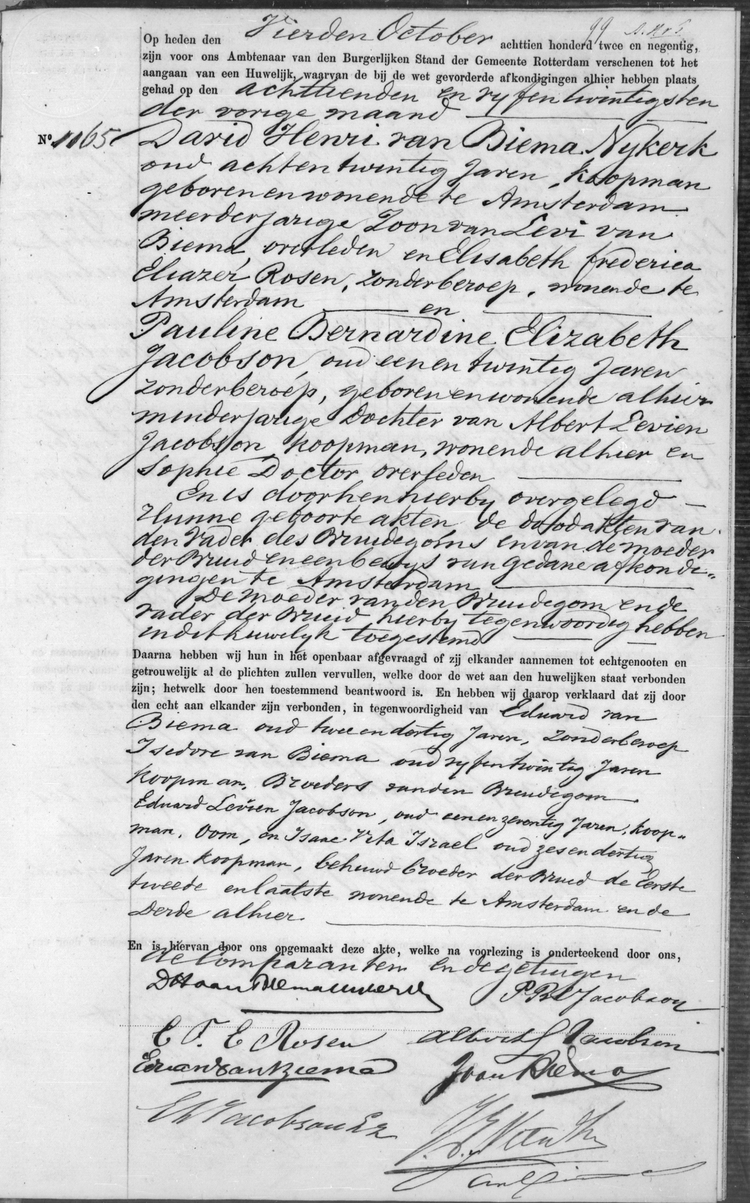 99
Op heden den Vierden October achttien honderd twee en negentig,
zijn voor ons Ambtenaar van den Burgerlijken Stand der Gemeente Rotterdam verschenen tot het
aangaan van een Huwelijk, waarvan de bij de wet gevorderde afkondigingen alhier hebben plaats
gehad op den achttienden en vyfentwintigsten
der vorige maand
No. 1165
David Henri van Biema Nykerk
oud achtentwintig Jaren, koopman
geboren en wonende te Amsterdam
meerderjarige Zoon van Levi van
Biema, overleden en Elisabeth Frederica
Eliazer Rosen, zonder beroep, wonende te
Amsterdam en
Pauline Bernardine Elizabeth
Jacobson, oud eenentwintig Jaren
zonder beroep, geboren en wonende alhier
minderjarige Dochter van Albert Levien
Jacobson, koopman, wonende alhier en
Sophie Doctor overleden
En is door hen hierby overgelegd
Hunne geboorte akten, de doodakten van
den Vader des Bruidegoms en van de moeder
der Bruid en een bewys van gedane afkondi„
gingen te Amsterdam
De moeder van den Bruidegom en de
vader der Bruid hierby tegenwoordig hebben
in dit huwelyk toegestemd
Daarna hebben wij hun in het openbaar afgevraagd of zij elkander aannemen tot echtgenooten en
getrouwelijk al de plichten zullen vervullen, welke door de wet aan den huwelijken staat verbonden
zijn; hetwelk door hen toestemmend beantwoord is. En hebben wij daarop verklaard dat zij door
den echt aan elkander zijn verbonden, in tegenwoordigheid van Eduard van
Biema oud twee en dertig Jaren, zonder beroep
Isidore van Biema oud vyfentwintig Jaren
koopman, Broeders van den Bruidegom
Eduard Levien Jacobson, oud eenenzeventig Jaren, koop„
man, Oom, en Isaac Vita Israel oud zesendertig
Jaren koopman, behuwd broeder der Bruid de Eerste
tweede en laatste wonende te Amsterdam en de
Derde alhier.
En is hiervan door ons opgemaakt deze akte, welke na voorlezing is onderteekend door ons,
de Comparanten en de getuigen
DH van Biema Nykerk P B E Jacobson
E F E Rosen Albert L Jacobson
Eduard van Biema J van Biema
Ed Jacobson Lz